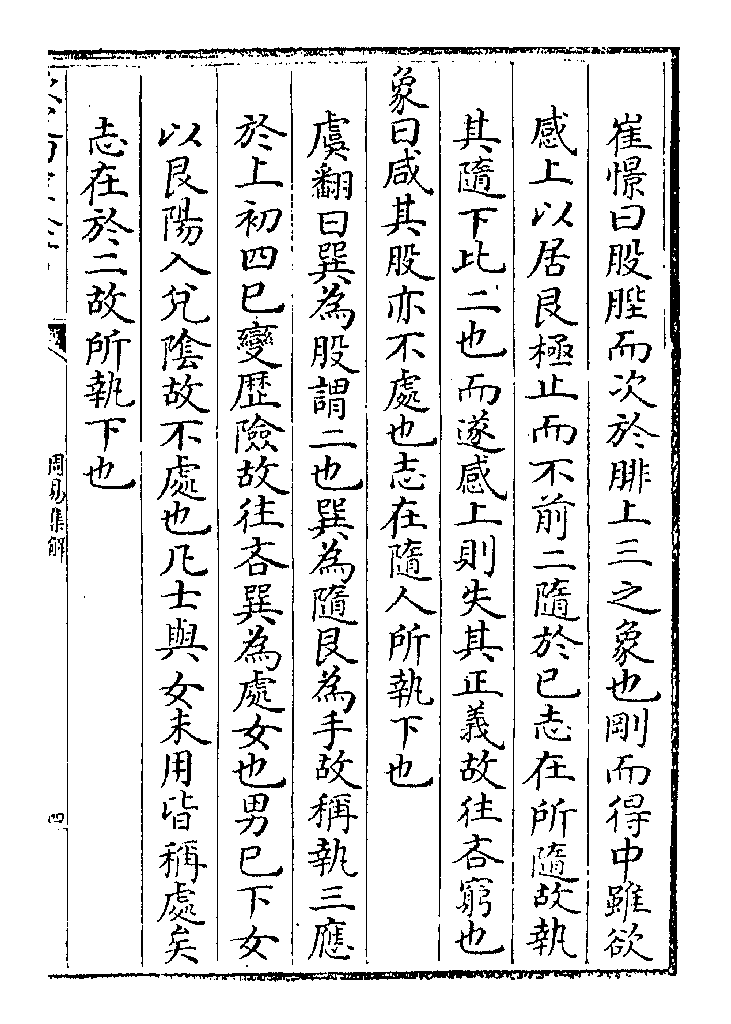 崔憬曰股䏶而次於腓上三之象也剛而得中雖欲
感上以居艮極止而不前二隨於已志在所隨故執
其隨下比二也而遂感上則失其正義故往吝窮也
象曰咸其股亦不處也志在隨人所執下也
虞翻曰巽為股謂二也巽為隨艮為手故稱執三應
於上初四已變歴險故往吝巽為處女也男已下女
以艮陽入兊陰故不處也凡士與女未用皆稱處矣
志在於二故所執下也
周易集解
四